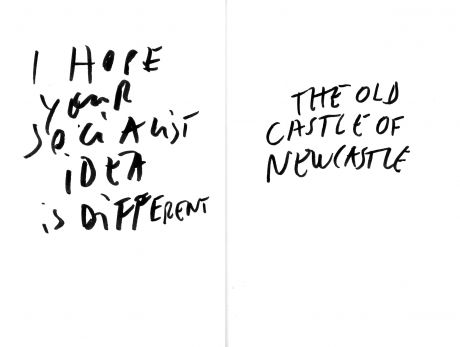 I HOPE
YOUR
SOCIALIST
iDEA
is DiFFERENT
THE OLD
CASTLE OF
NEWCASTLE